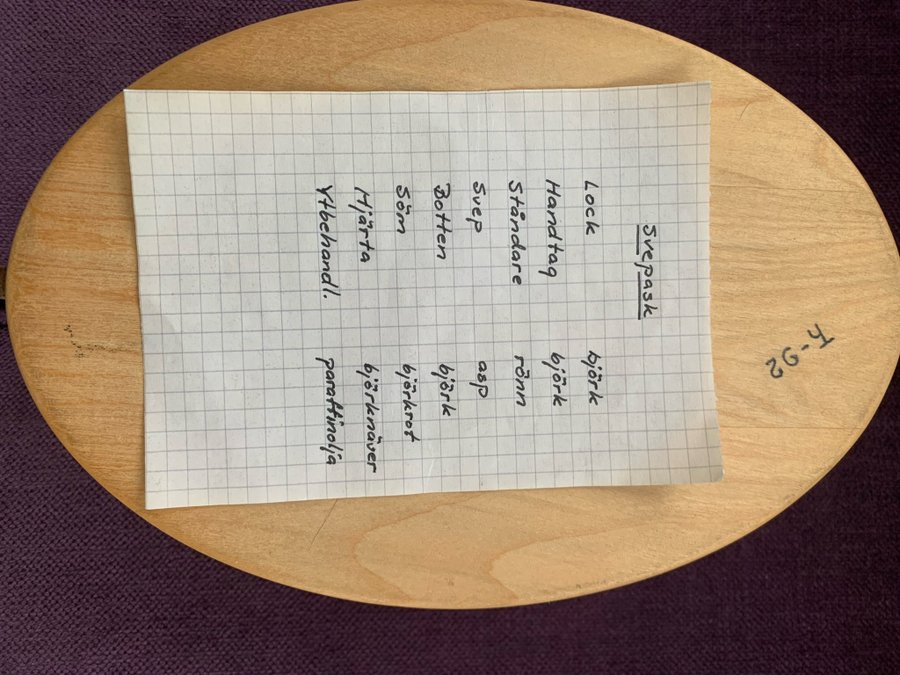 Svepask
Lock björk
Handtag björk
Ståndare rönn
Svep asp
Botten björk
Söm björkrot
Hjärta björknäver
Ytbehandl. paraffinolja